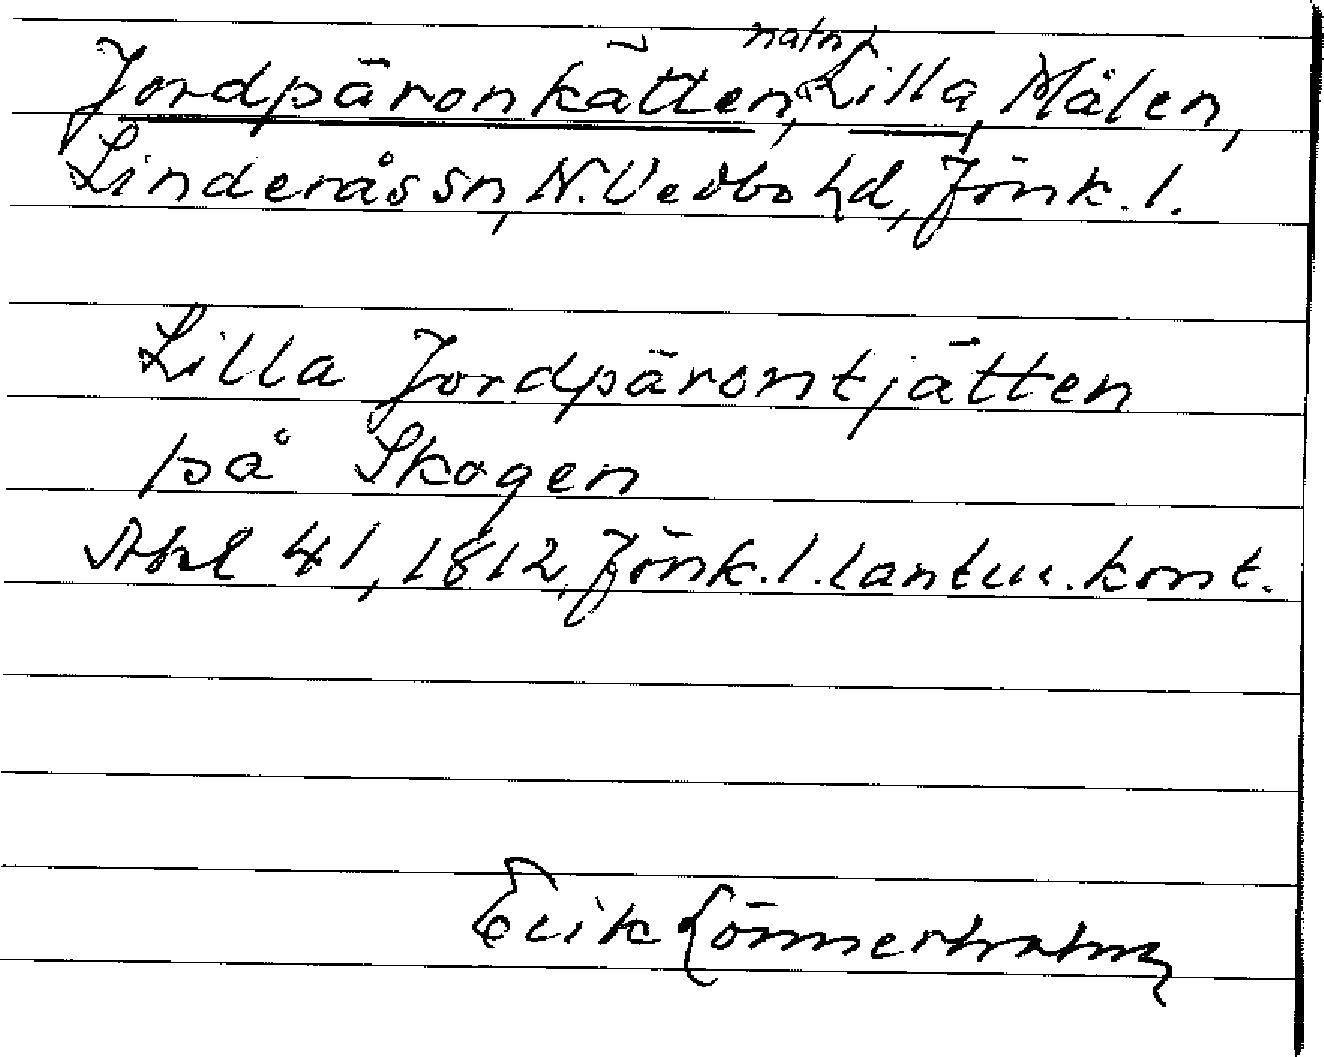 natn
Jordpäronkätten, Lilla, Målen,
Linderås sn, N. Vedbo hd, Jönk. l.
Lilla Jordpärontjätten
på Skogen
Akt 41, 1812, Jönk. l. lantm. kont.
Erik Lönnerholm